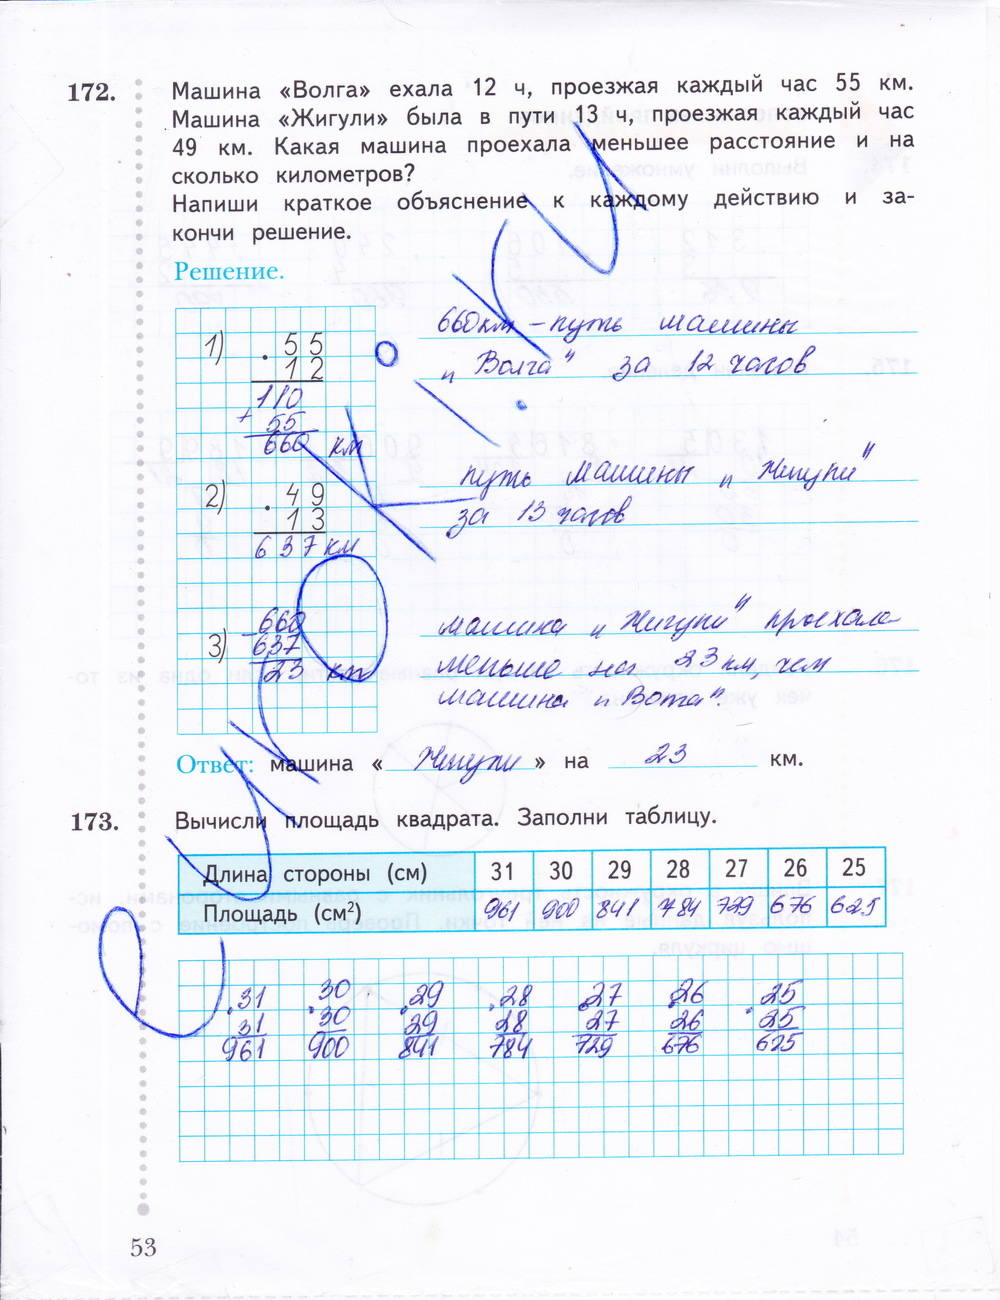 172. Машина «Волга» ехала 12 ч, проезжая каждый час 55 км.
Машина «Жигули» была в пути 13 ч, проезжая каждый час
49 км. Какая машина проехала меньшее расстояние и на
сколько километров?
Напиши краткое объяснение к каждому действию и за-
кончи решение.
Решение.
1) . 55
12
110
+ 55
660 км
660 км – путь машины
„Волга" за 12 часов
2) . 49
13
637 км
путь машины „Жигули"
за 13 часов
3) – 660
637
23 км
машина „Жигули" проехала
меньше на 23 км, чем
машина „Волга".
Ответ: машина « Жигули » на 23 км.
173. Вычисли площадь квадрата. Заполни таблицу.
Длина стороны (см) 31 30 29 28 27 26 25
Площадь (см²) 961 900 841 784 729 676 625
.31 .30 .29 .28 .27 .26 .25
31 30 29 28 27 26 25
961 900 841 784 729 676 625
53